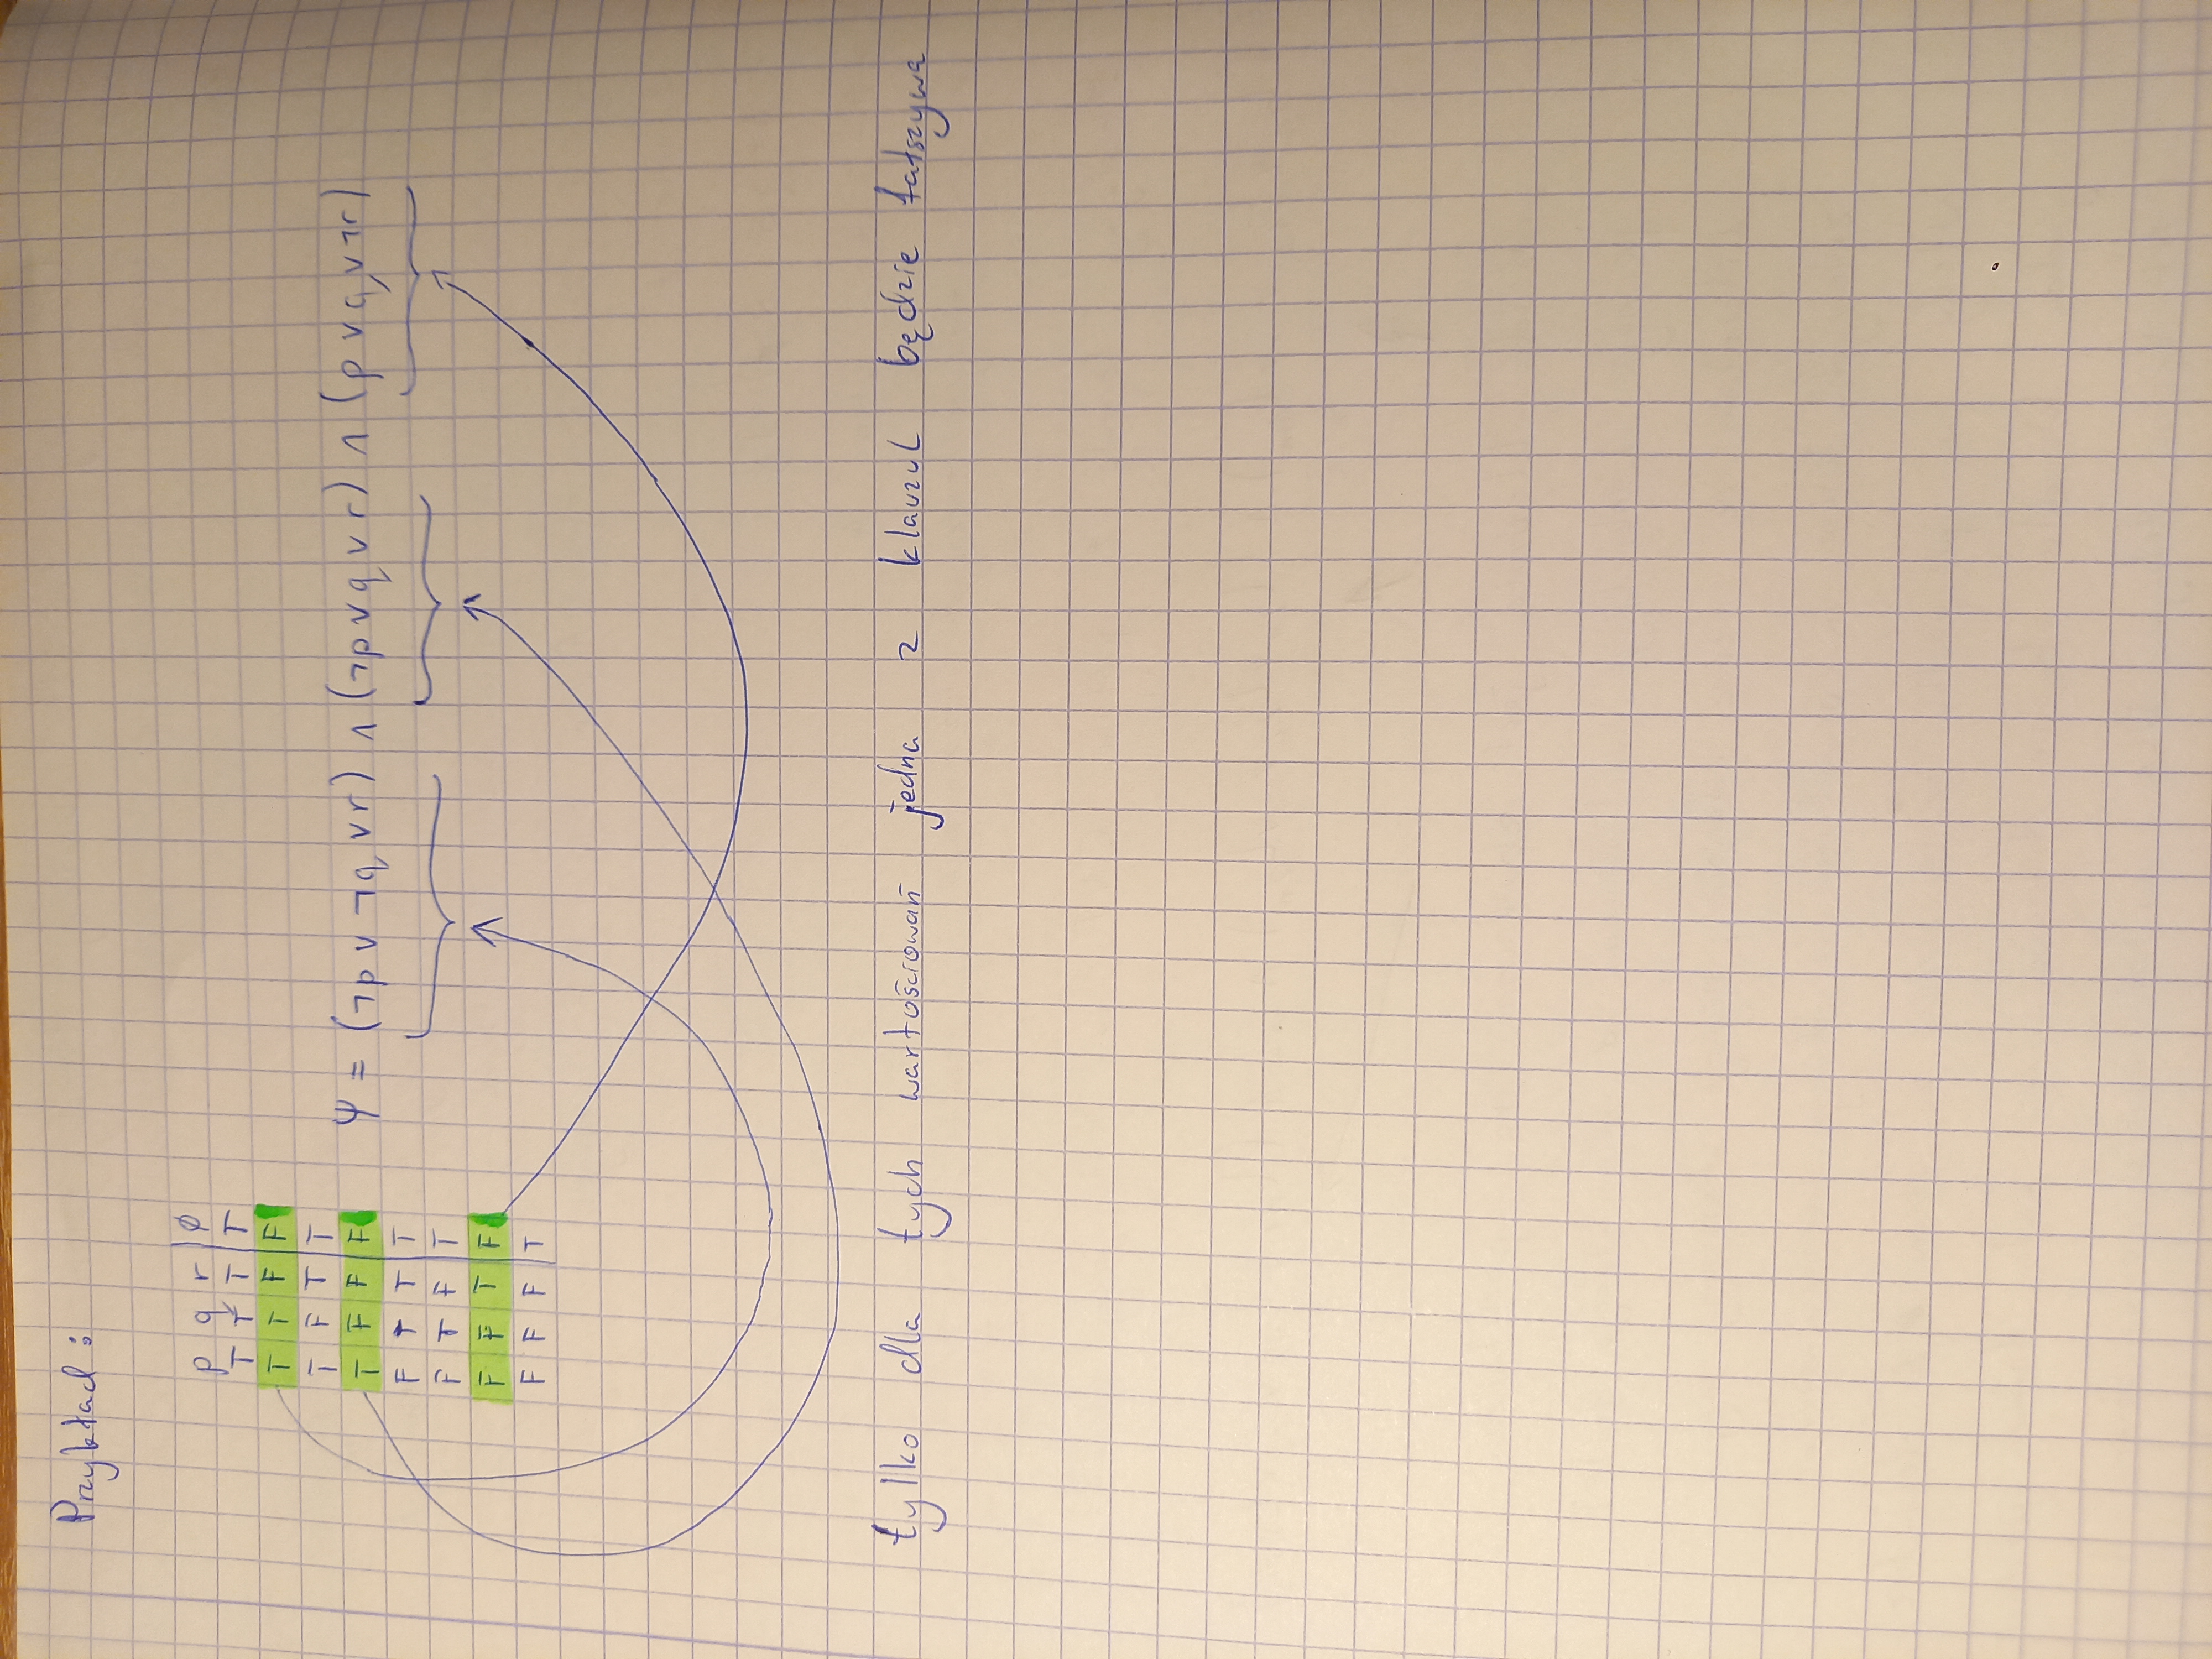 Przykład:
p q r | φ
T T T | T
T T F | F
T F T | T
T F F | F
F T T | T
F T F | T
F F T | F
F F F | T
Ψ = (¬p ∨ ¬q ∨ r) ∧ (¬p ∨ q ∨ r) ∧ (p ∨ q ∨ ¬r)
tylko dla tych wartościowań jedna z klauzul będzie fałszywa